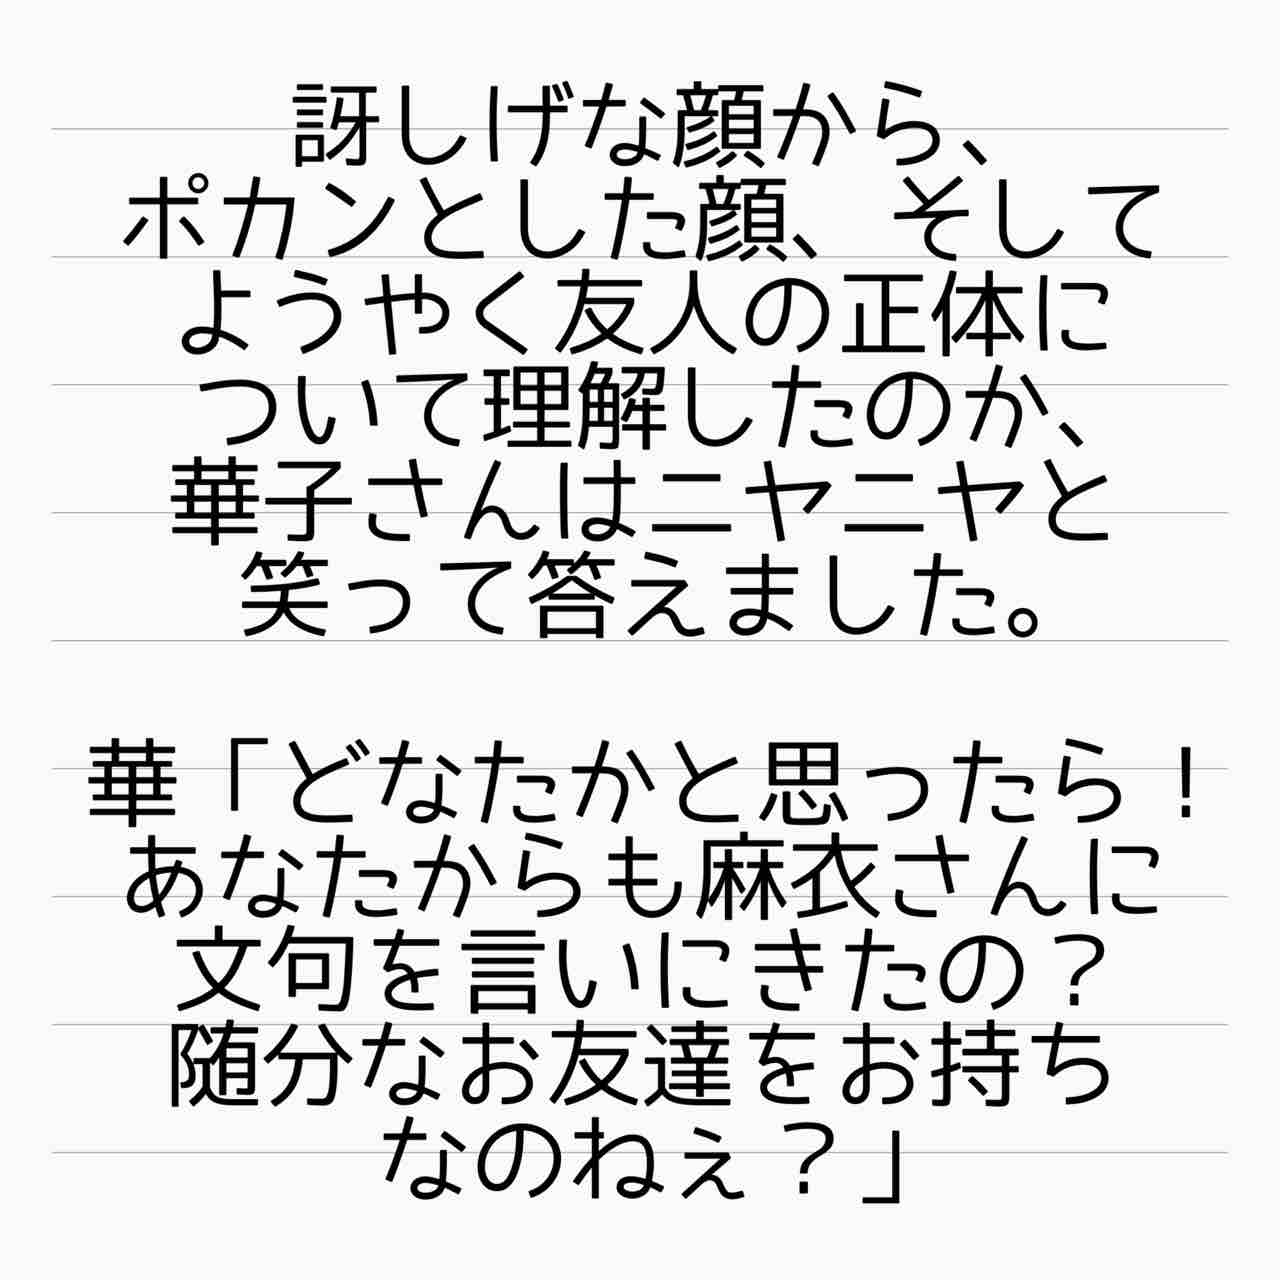 訝しげな顔から、
ポカンとした顔、そして
ようやく友人の正体に
ついて理解したのか、
華子さんはニヤニヤと
笑って答えました。
華「どなたかと思ったら！
あなたからも麻衣さんに
文句を言いにきたの？
随分なお友達をお持ち
なのねぇ？」